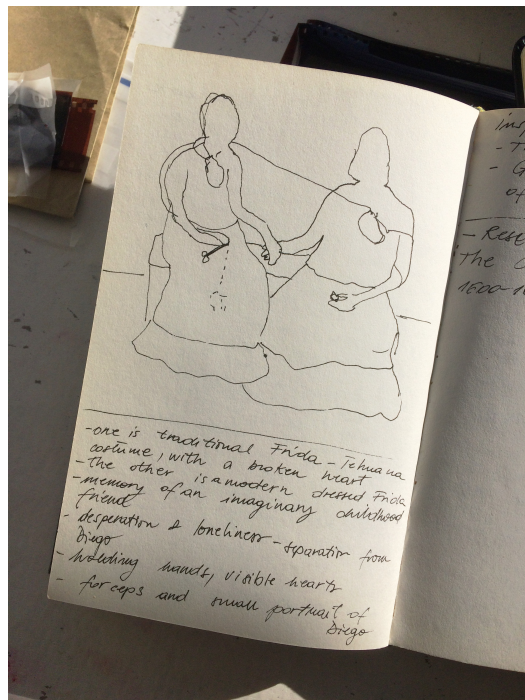 -one is traditional Frida - Tehuana
costume, with a broken heart
-the other is a modern dressed Frida
-memory of an imaginary childhood
friend
- desperation & loneliness - separation from
Diego
- holding hands, visible hearts
- forceps and small portrait of
Diego
- T
- G
of
- Rese
The
1600-1